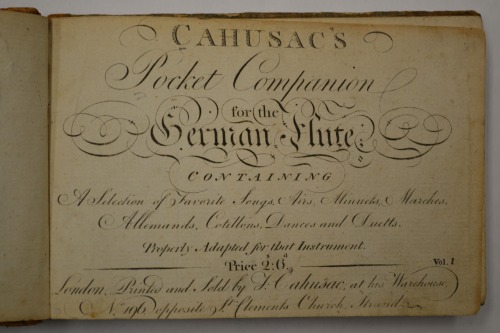 CAHUSAC'S
Pocket Companion
for the
German Flute
CONTAINING
A Selection of Favorite Songs, Airs, Minuets, Marches,
Allemands, Cotillons, Dances and Duetts.
Properly Adapted for that Instrument.
Price 2s:6d
Vol. I
London, Printed and Sold by T. Cahusac, at his Warehouse,
No. 196 opposite St. Clements Church, Strand.